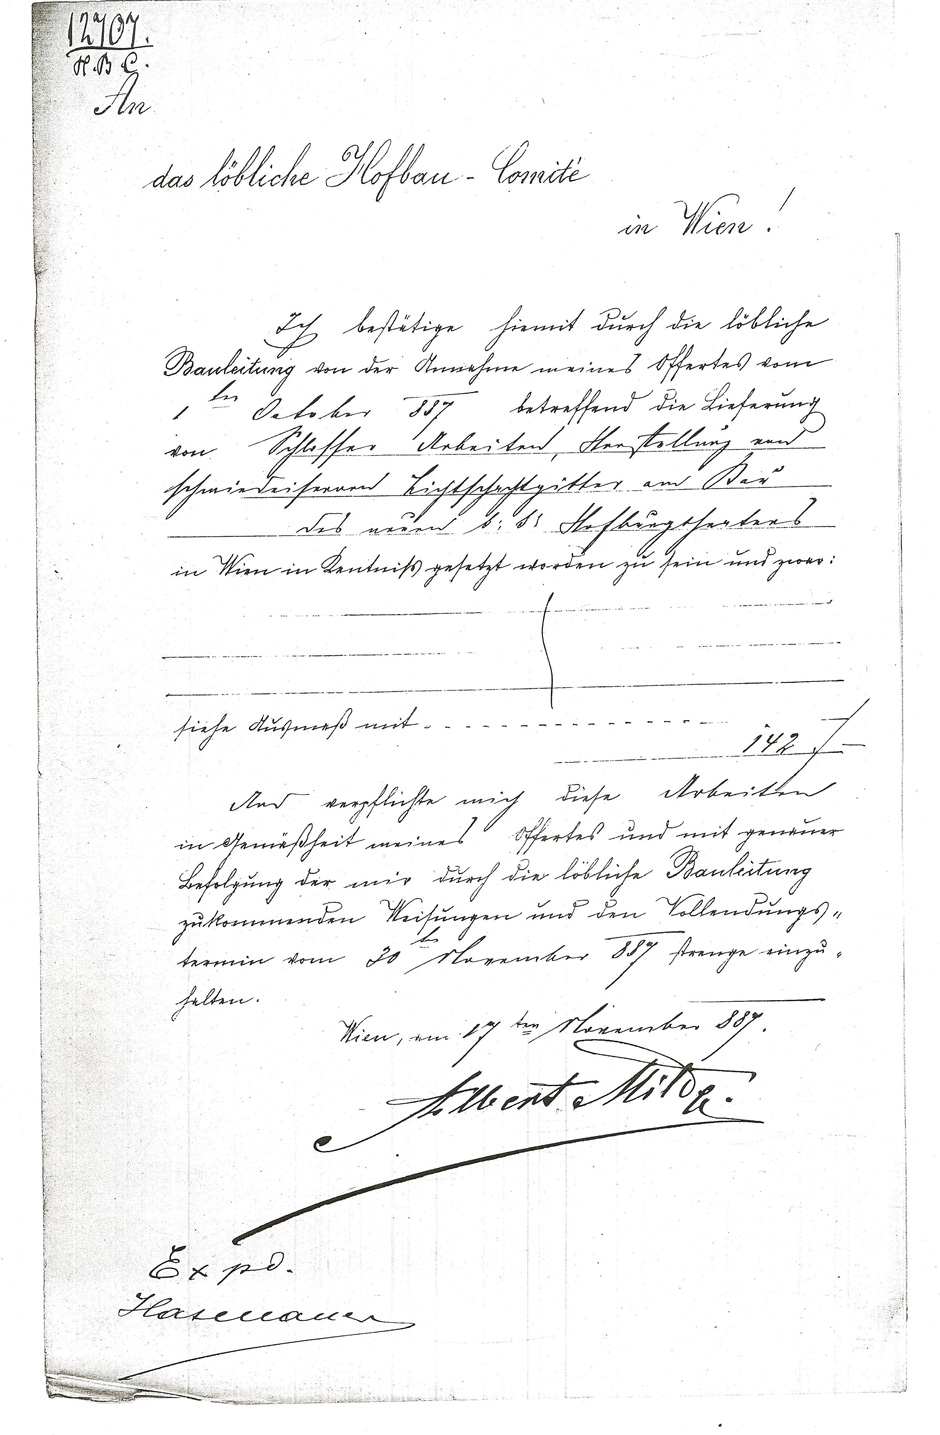 12707.
H.B.C.
An
das löbliche Hofbau-Comité
in Wien!
Ich bestätige hiemit durch die löbliche
Bauleitung von der Annahme meines Offertes vom
1ten October 887 betreffend die Lieferung
von Schlosser Arbeiten, Herstellung von
schmiedeisernen Lichtschachtgitter am Bau
des neuen k: k: Hofburgtheaters
in Wien in Kentniß gesetzt worden zu sein und zwar:
siehe Ausmaß mit
142
Und verpflichte mich diese Arbeiten
in Gemäßheit meines Offertes und mit genauer
Befolgung der mir durch die löbliche Bauleitung
zukommenden Weisungen und den Vollendungs„
termin vom 30t November 887 strenge einzu„
halten.
Wien, am 17ten November 887.
Albert Milde.
Expd.
Hasenauer